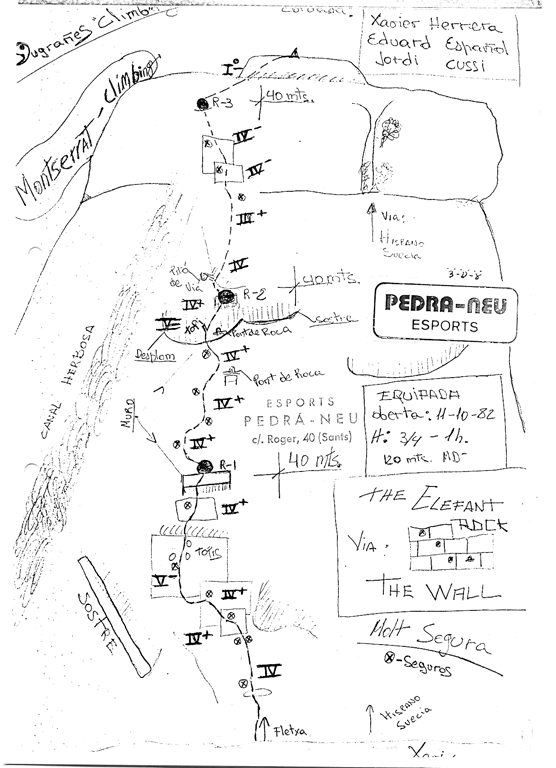 Bugrañes "Climb"
Montserrat - Climbing
Xavier Herrera
Eduard Español
Jordi Cussi
Iº
R-3
40 mts.
IV-
IV-
III+
Via:
HISPANO
SUECIA
IV
de
Via
IV+
R-2
40 mts.
sostre
Pont de Roca
Desplom
PEDRA-NEU
ESPORTS
IV+
Pont de Roca
CANAL HERBOSA
MURO
IV+
ESPORTS
PEDRA-NEU
c/. Roger, 40 (Sants)
EQUIPADA
oberta: 11-10-82
H: 3/4 - 1h.
120 mts. MD-
IV+
R-1
40 mts.
IV+
THE ELEFANT
ROCK
VIA:
THE WALL
TOTIS
V-
IV+
SOSTRE
IV+
Molt Segura
⊗-Seguros
IV
HISPANO
SUECIA
Fletxa